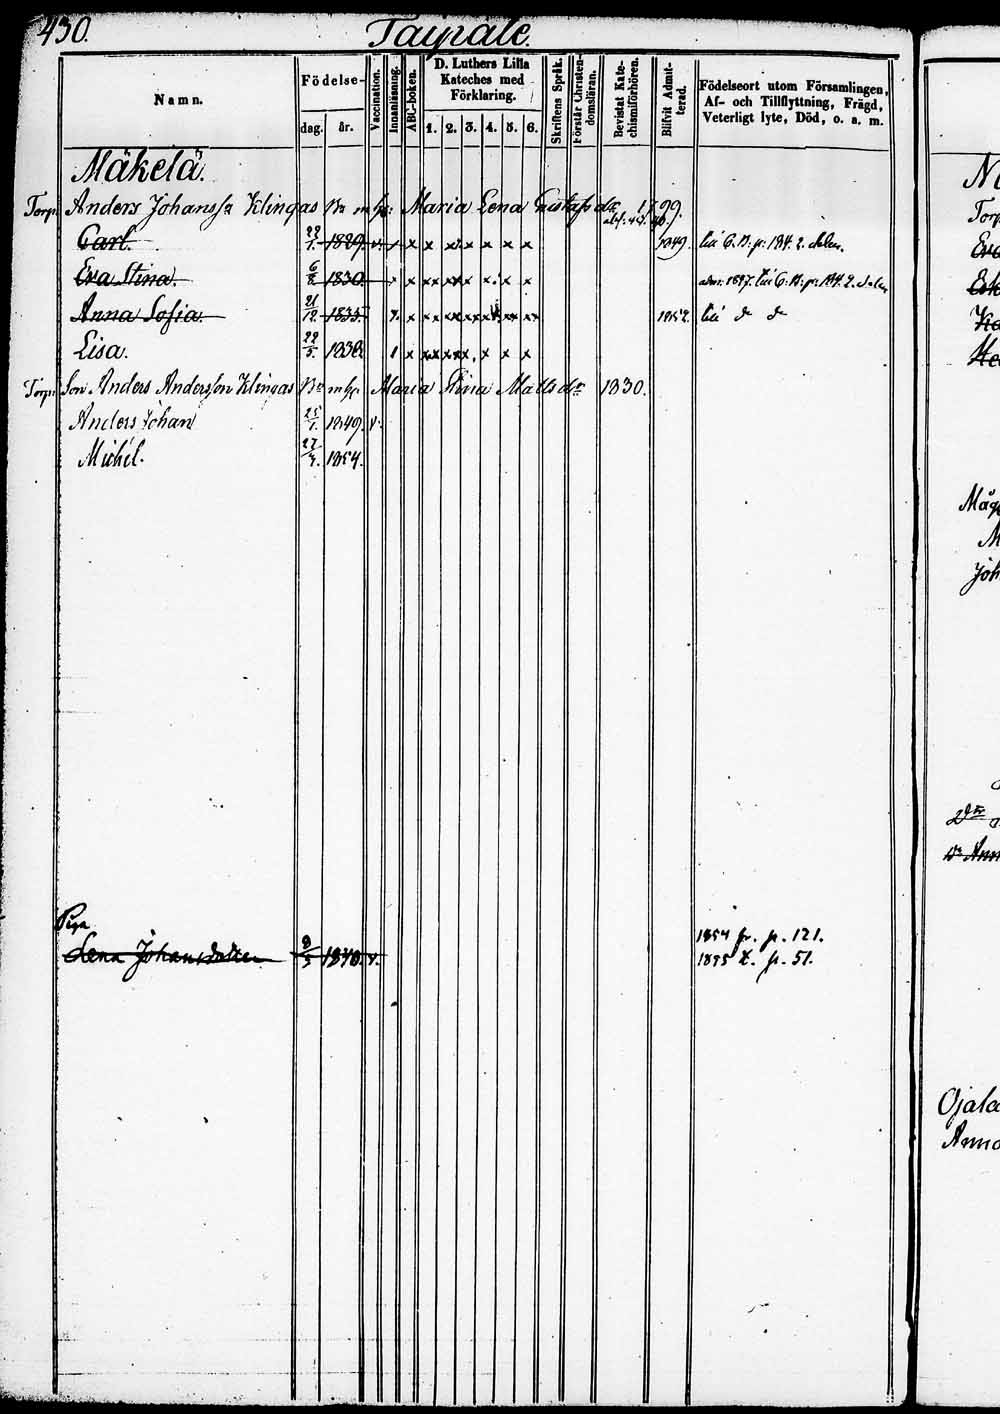 430.
Taipale.
Namn.
Födelse-
dag. år.
Vaccination.
Innanläsning.
ABC-boken.
D. Luthers Lilla
Kateches med
Förklaring.
1. 2. 3. 4. 5. 6.
Skriftens Språk.
Förstår Christen-
domsläran.
Bevistat Kate-
chismiförhören.
Blifvit Admit-
terad.
Födelseort utom Församlingen,
Af- och Tillflyttning, Frägd,
Veterligt lyte, Död, o. a. m.
Mäkelä.
Torp. Anders Johanss. Klingas Maria Lena Gustafsdr 1799.
Carl. 22/1. 1829. v. x x x x x x x 1849. p. 184. 2. delen.
Eva Stina. 6/8 1830. x x x x x x x p. 184. 2. delen
Anna Sofia. 21/12. 1835. x x x x x x x 1852. d d
Lisa. 22/5. 1838. x x x x x x x
Torp. Son Anders Andersson Klingas Maria Stina Mattsdr 1830.
Anders Johan 25/1. 1849. v.
Michel. 27/3. 1854.
Piga
Lena Johansdotter 8/3 1840. v.
1854 fr. p. 121.
1855 t. p. 51.
Torp
Måg
Joh
Ojala
Anna